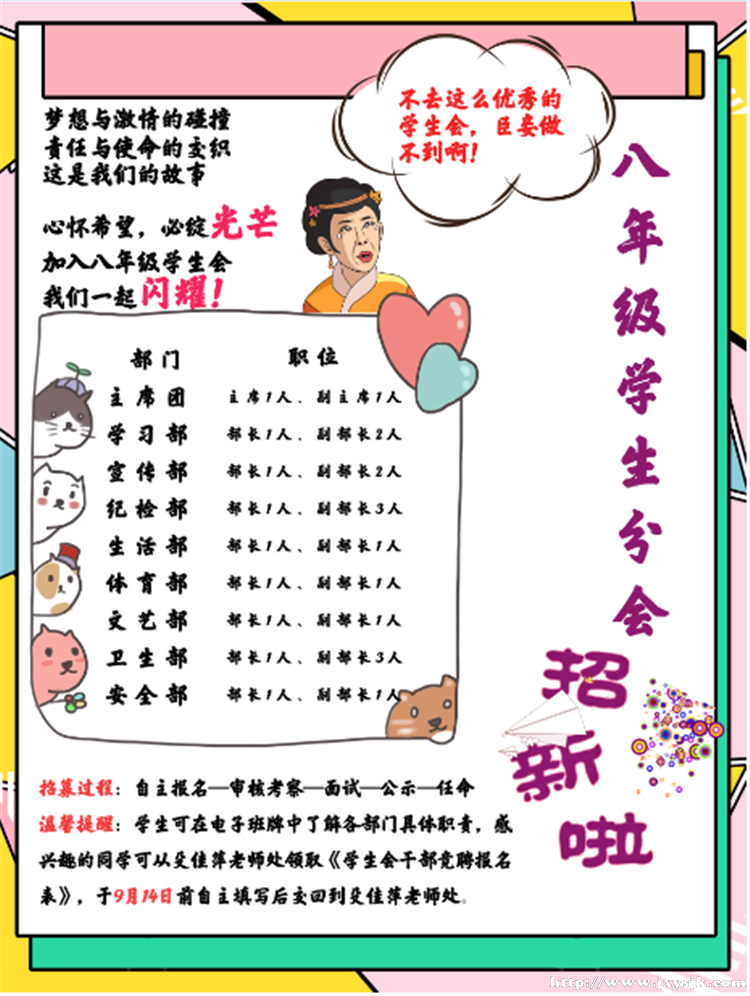 不去这么优秀的
学生会，臣妾做
不到啊！
梦想与激情的碰撞
责任与使命的交织
这是我们的故事
心怀希望，必绽光芒
加入八年级学生会
我们一起闪耀！
八年级学生分会
招新啦
部门 职位
主席团 主席1人、副主席1人
学习部 部长1人、副部长2人
宣传部 部长1人、副部长2人
纪检部 部长1人、副部长3人
生活部 部长1人、副部长1人
体育部 部长1人、副部长1人
文艺部 部长1人、副部长1人
卫生部 部长1人、副部长3人
安全部 部长1人、副部长1人
招募过程：自主报名—审核考察—面试—公示—任命
温馨提醒：学生可在电子班牌中了解各部门具体职责，感
兴趣的同学可从吴佳萍老师处领取《学生会干部竞聘报名
表》，于9月14日前自主填写后交回到吴佳萍老师处。
http://www.jxysjk.com